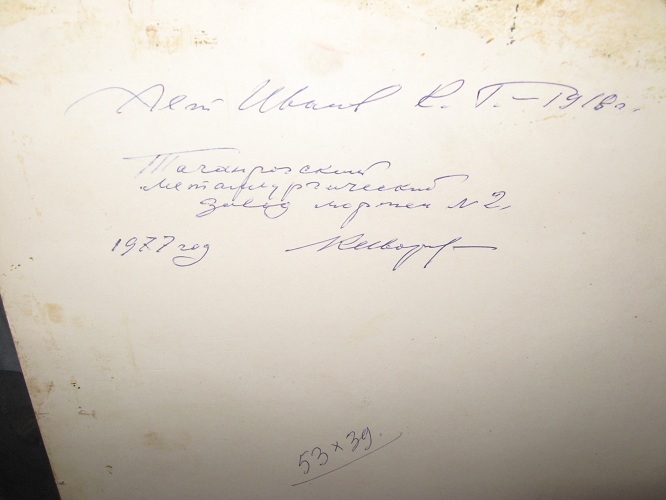 Авт Иванов К. Г. – 1918 г.
Таганрогский
металлургический
завод мартен N 2.
1977 год
53 × 39.